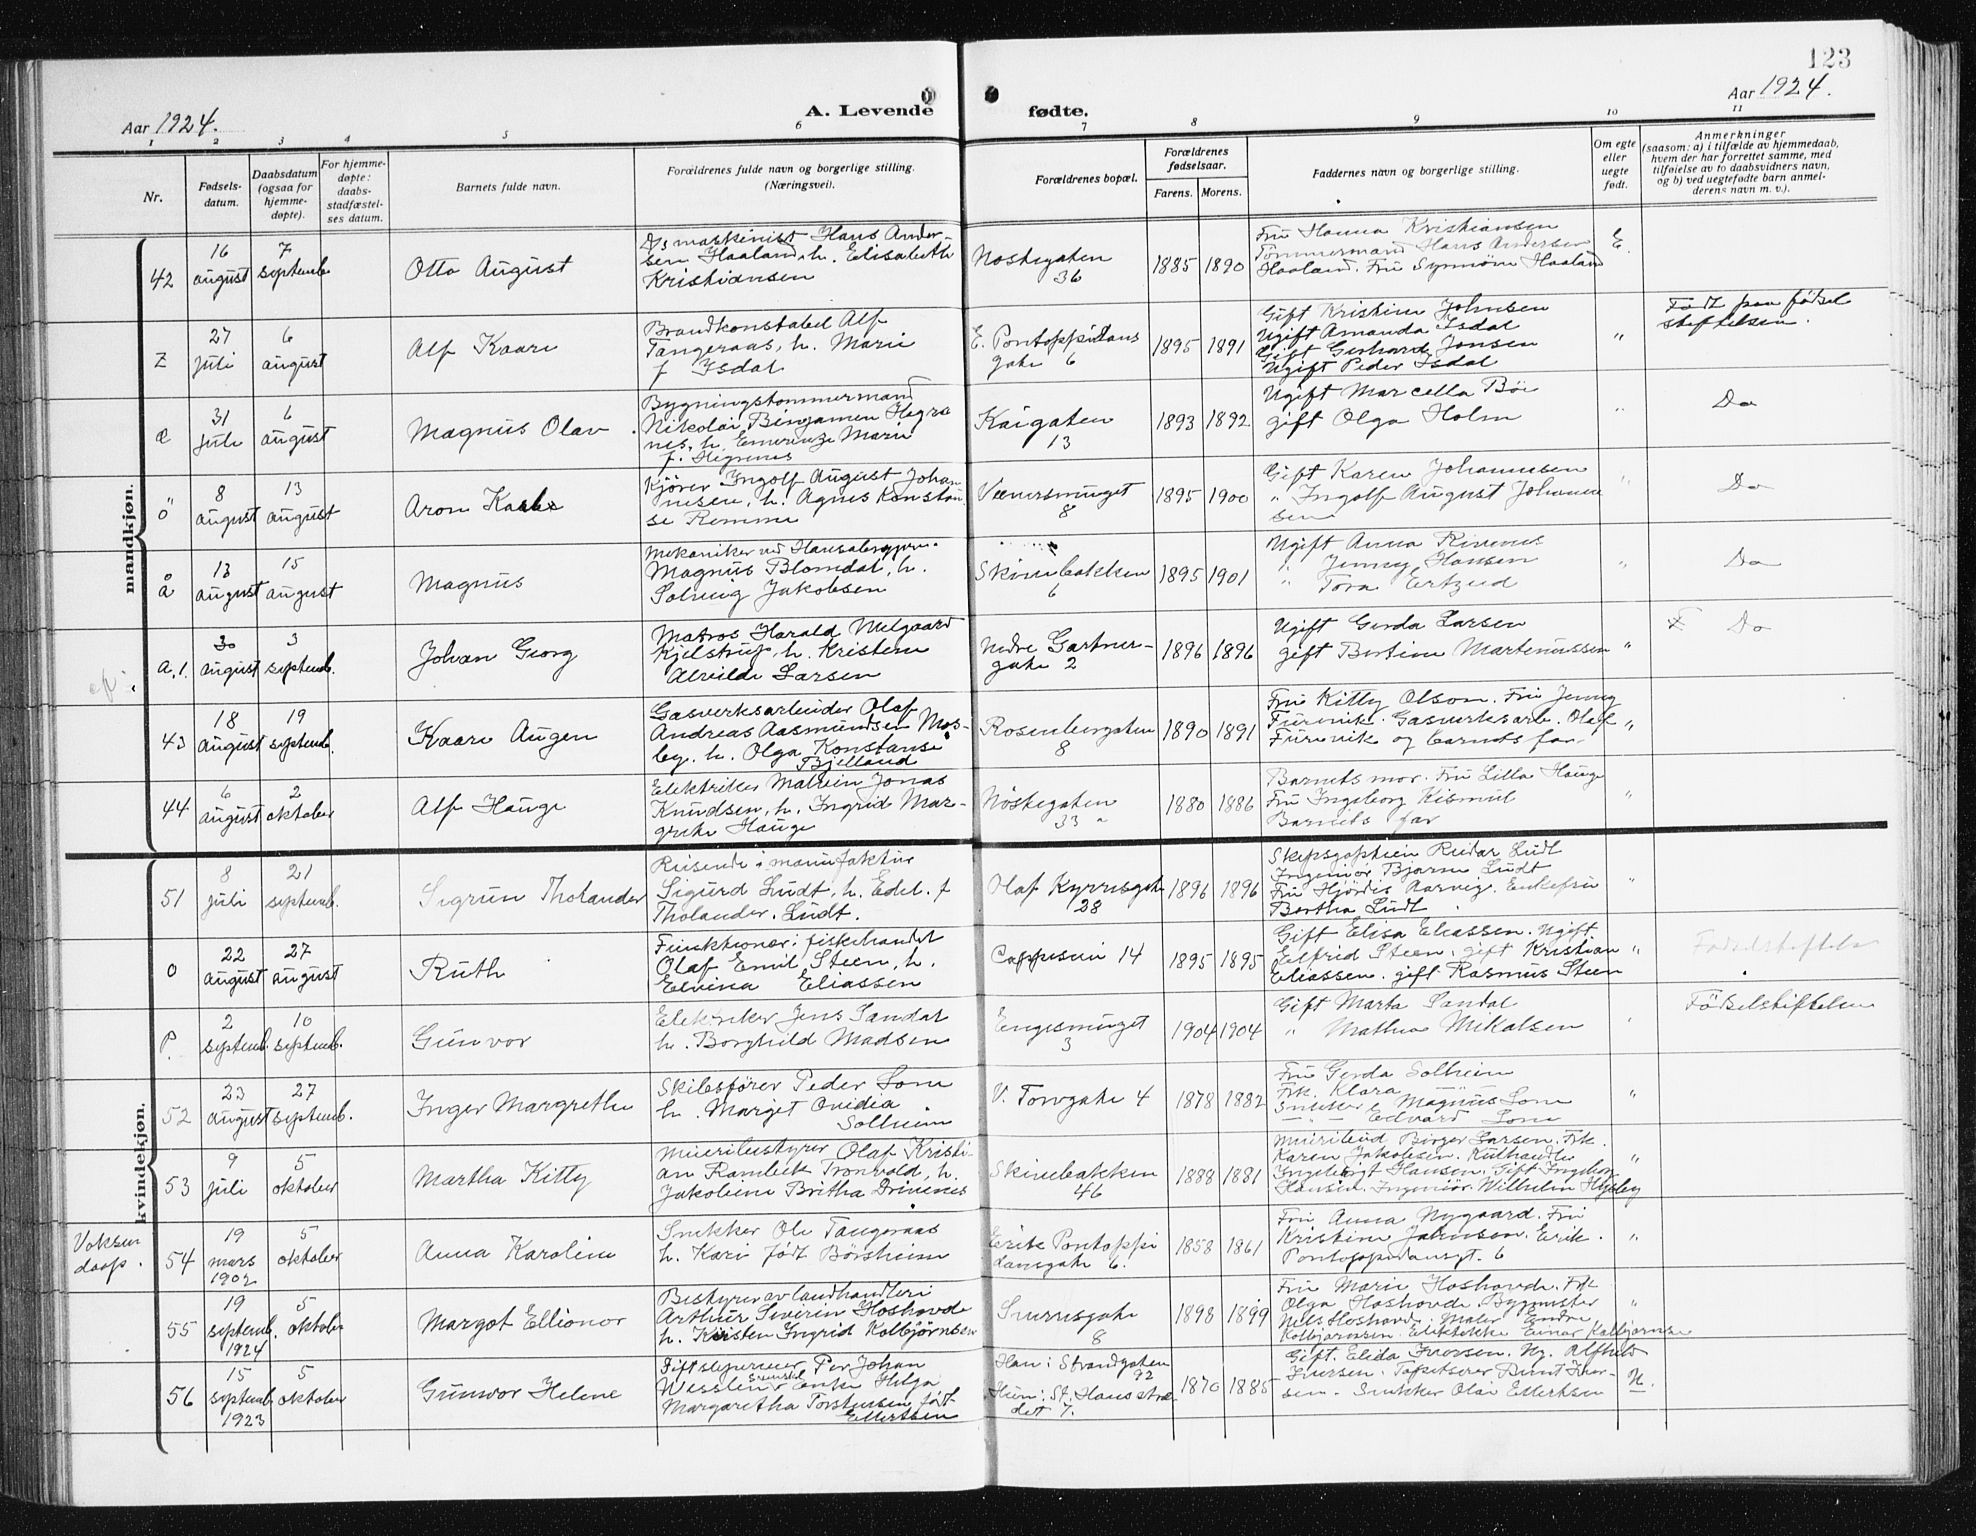 123
Aar 1924.
A. Levende fødte.
Aar 1924.
1 2 3 4 5 6 7 8 9 10 11
Nr.
Fødsels-
datum.
Daabsdatum
(ogsaa for
hjemme-
døpte).
For hjemme-
døpte:
daabs-
stadfæstel-
ses datum.
Barnets fulde navn.
Forældrenes fulde navn og borgerlige stilling.
(Næringsvei).
Forældrenes bopæl.
Forældrenes
fødselsaar.
Farens. Morens.
Faddernes navn og borgerlige stilling.
Om egte
eller
uegte
født.
Anmerkninger
(saasom: a) i tilfælde av hjemmedaab,
hvem der har forrettet samme, med
tilføielse av to daabsvidners navn,
og b) ved uegtefødte barn anmel-
derens navn m. v.).
mandkjøn.
42
16
august
7
septemb.
Otto August
Ds maskinist Hans Ander-
sen Haaland, h. Elisabeth
Kristiansen
Nøstegaten
36
1885 1890
Fru Hanna Kristiansen
Tømmermand Hans Andersen
Haaland. Fru Synnøve Haaland
E.
Z
27
juli
6
august
Alf Kaare
Brandkonstabel Alf
Tangeraas, h. Marie
f Isdal
E. Pontoppidans
gate 6
1895 1891
Gift Kristine Johnsen
Ugift Amanda Isdal
Gift Gerhard Jonsen
Ugift Peder Isdal
"
Født paa fødsel
stiftelsen.
æ
31
juli
6
august
Magnus Olav
Bygningstømmermand
Nikolai Benjamen Hegre
nes, h. Emerenze Marie
f. Hegrenes
Kaigaten
13
1893 1892
Ugift Marcella Bøe
gift Olga Holm
"
Do
ö
8
august
13
august
Aron Kaare
Kjører Ingolf August Johan
nesen, h. Agnes Konstan
se Remme
Veversmuget
8
1895 1900
Gift Karen Johannesen
" Ingolf August Johanne
sen
"
Do
å
13
august
15
august
Magnus
Mekaniker ved Hansabryggeri.
Magnus Blomdal, h.
Solveig Jakobsen
Skivebakken
6
1895 1901
Ugift Anna Rimnes
" Jenny Hansen
" Tora Ertzeid
"
Do
a.1
30
august
3
septemb.
Johan Georg
Matros Harald Melgaard
Kjelstrup, h. Kristine
Alvilde Larsen
Nedre Gartner-
gate 2
1896 1896
Ugift Gerda Larsen
gift Bertine Martenussen
"
Do
43
18
august
19
septemb.
Kaare Augen
Gasverksarbeider Olaf
Andreas Aasmundsen Mos-
by. h. Olga Konstanse
Bjelland
Rosenbergaten
8
1890 1891
Fru Kitty Olson. Fru Jenny
Furevik. Gasverksarb. Olaf
Furevik og barnets far.
"
44
6
august
2
oktober
Alf Hauge
Elektriker Mathin Jonas
Knudsen, h. Ingrid Mar-
grete Hauge
Nøstegaten
33 a
1880 1886
Barnets mor. Fru Lilla Hauge
Fru Ingeborg Kismul
Barnets far
"
kvindekjøn.
51
8
juli
21
septemb.
Sigrun Tholander
Reisende i manufaktur
Sigurd Lüdt, h. Edel. f
Tholander. Lüdt.
Olaf Kyrresgate
28
1896 1896
Skipsgaptein Reidar Lüdt
Ingeniør Bjarne Lüdt
Fru Hjørdis Aarvig. Enkefru
Bertha Lüdt
"
o
22
august
27
august
Ruth
Funktionær i fiskehandel
Olaf Emil Steen, h.
Elvina Eliassen
Cappesmu 14
1895 1895
Gift Elisa Eliassen. Ugift
Elfrid Steen. gift Kristian
Eliassen. gift Rasmus Steen
"
Fødselstiftels
P.
2
septemb.
10
septemb.
Gunvor
Elektriker Jens Sandal
h. Borghild Madsen
Engesmuget
3
1904 1904
Gift Marta Sandal
" Mathea Mikalsen
"
Fødselstiftelsen
52
23
august
27
septemb.
Inger Margrethe
Skibsfører Peder Lone
h. Marget Ovedia
Solheim
V. Torvgate 4
1878 1882
Fru Gerda Solheim
Frk. Klara
Snekker Magnus Lone
" Edvard Lone
"
53
9
juli
5
oktober
Martha Kitty
Meieribestyrer Olaf Kristi-
an Rambek Tronvold, h.
Jakobine Britha Drivenes
Skivebakken
46
1888 1881
Meieribud Birger Larsen. Frk.
Karen Jakobsen. Kulhandler
Ingebrigt Hansen. Gift Ingeborg
Hansen. Ingeniør. Wilhelm Høisby
"
Voksen
daap.
54
19
mars
1902
5
oktober
Anna Karoline
Snekker Ole Tangeraas
h. Kari født Børsheim
Erik Pontoppi
dansgate 6.
1858 1861
Fru Anna Nygaard. Fru
Kristine Johnsen. Erik.
Pontoppidansgt. 6
"
55
19
septemb.
1924
5
oktober
Margot Ellionor
Bestyrer av landhandleri
Arthur Severin Hoshovde
h. Kirsten Ingrid Kolbjørnsen
Sverresgate
8
1898 1899
Fru Marie Hoshovde. Frk
Olga Hoshovde. Bygmester
Nels Hoshovde. Maler Endre
Kolbjørnsen. Elektrikke Einar Kolbjørnse
"
56
15
septemb.
1923
5
oktober
Gunvor Helene
Skiftseperneier Per Johan
Wesslen Svensk Enke Helga
Margaretha Torstensen født
Ellertsen
Han: Strandgaten
92
Hun: St. Hansstræ
det 7.
1870 1885
Gift. Elida Iversen. Ug. Alfhild
Iversen. Tapetserer Bernt Iver-
sen. Snekker Olai Ellertsen
U.